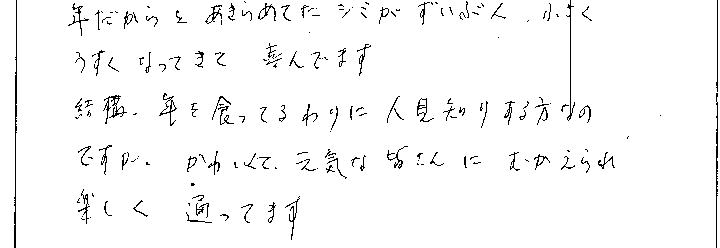 年だからと あきらめてた シミが ずいぶん 小さく
うすく なってきて 喜んでます
結構、年を食ってるわりに 人見知りする方なの
ですが、かわいくて、元気な皆さんに むかえられ
楽しく 通ってます